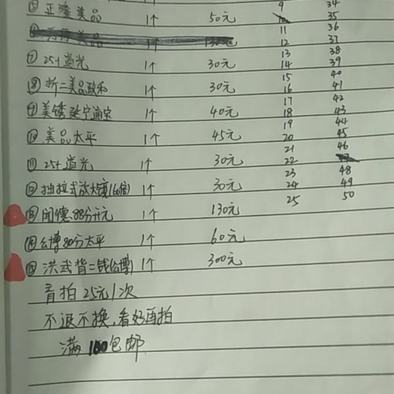 ⑤ 正隆美品 1个 50元
⑦ 25十道光 1个 30元
⑧ 折二美品政和 1个 30元
⑨ 美锈 1个 40元
⑩ 美品太平 1个 45元
⑪ 25十道光 1个 30元
⑫ 抽拉式放大镜 1个 30元
88分开元 1个 130元
公博80分太平 1个 60元
⑮ 洪武背二钱(公博) 1个 300元
盲拍25元1次
不退不换,看好再拍
满100包邮
9 34
35
11 36
12 37
13 38
14 39
15 40
16 41
17 42
18 43
19 44
20 45
21 46
22
23 48
24 49
25 50